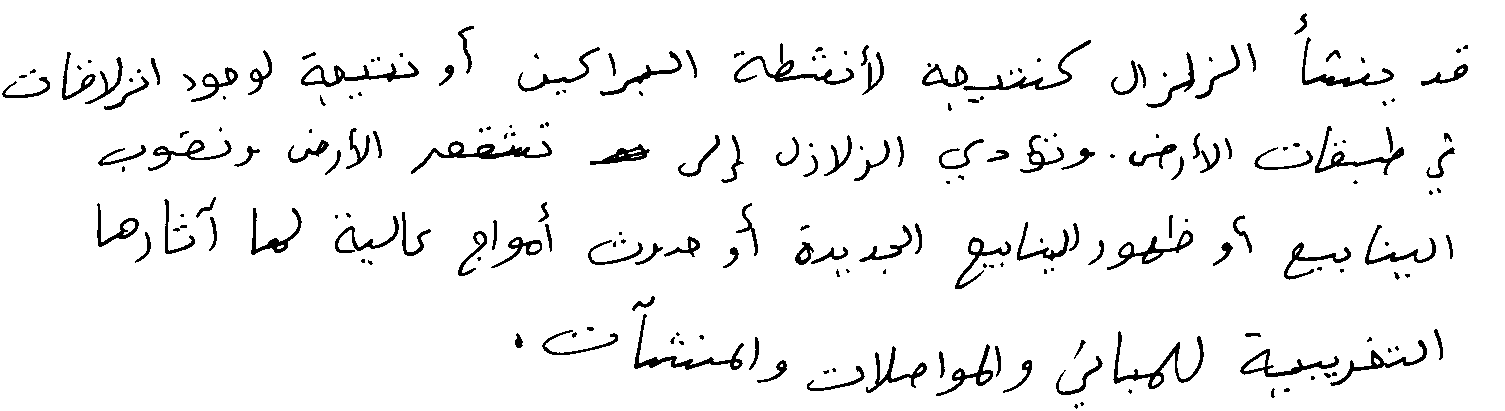 قد ينشأ الزلزال كنتيجة لأنشطة البراكين أو نتيجة لوجود انزلاقات
في طبقات الأرض. وتؤدي الزلازل إلى تشقق الأرض ونضوب
الينابيع أو ظهور الينابيع الجديدة أو حدوث أمواج عالية لها آثارها
التخريبية للمباني والمواصلات والمنشآت.